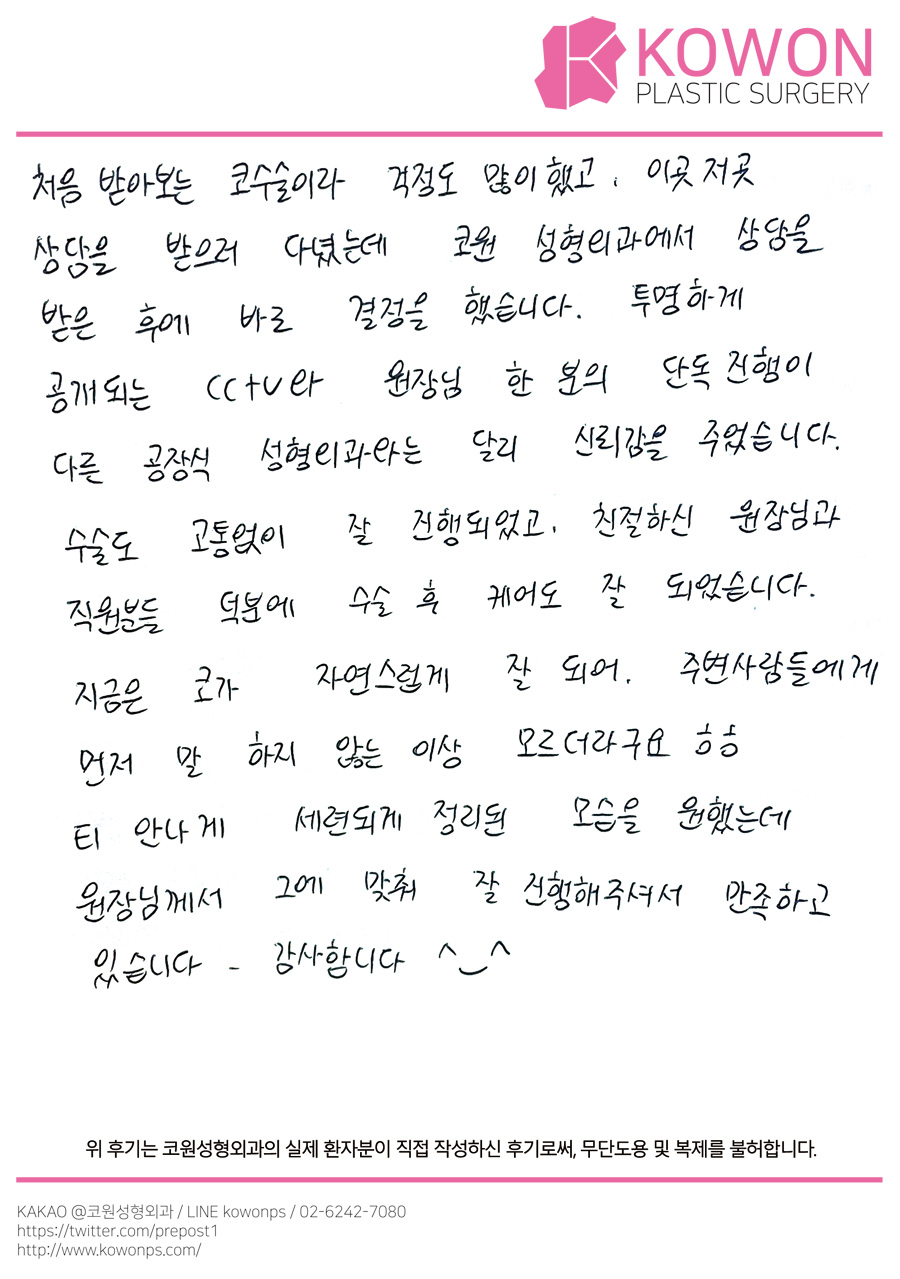 KOWON
PLASTIC SURGERY
처음 받아보는 코수술이라 걱정도 많이 했고, 이곳 저곳
상담을 받으러 다녔는데 코원 성형외과에서 상담을
받은 후에 바로 결정을 했습니다. 투명하게
공개되는 cctv와 원장님 한 분의 단독 진행이
다른 공장식 성형외과와는 달리 신뢰감을 주었습니다.
수술도 고통없이 잘 진행되었고, 친절하신 원장님과
직원분들 덕분에 수술 후 케어도 잘 되었습니다.
지금은 코가 자연스럽게 잘 되어, 주변사람들에게
먼저 말 하지 않는 이상 모르더라구요 ㅎㅎ
티 안나게 세련되게 정리된 모습을 원했는데
원장님께서 그에 맞춰 잘 진행해주셔서 만족하고
있습니다 - 감사합니다 ^_^
위 후기는 코원성형외과의 실제 환자분이 직접 작성하신 후기로써, 무단도용 및 복제를 불허합니다.
KAKAO @코원성형외과 / LINE kowonps / 02-6242-7080
https://twitter.com/prepost1
http://www.kowonps.com/